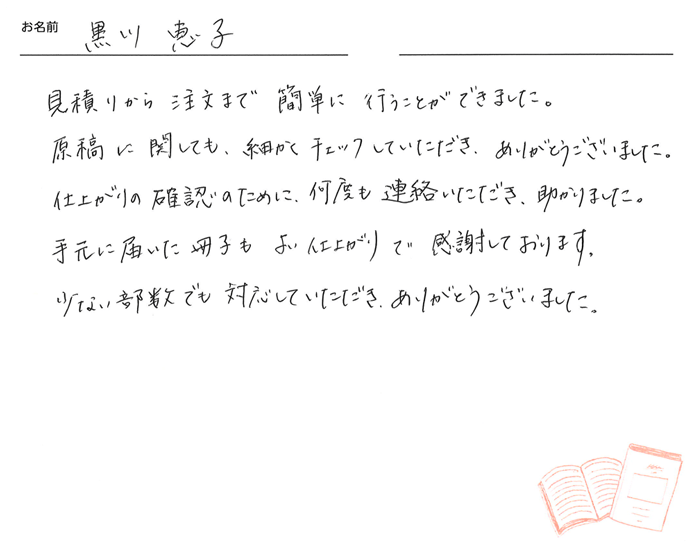 お名前 黒川 恵子
見積りから 注文まで 簡単に 行うことができました。
原稿に関しても、細かくチェックしていただき、ありがとうございました。
仕上がりの確認のために、何度も連絡いただき、助かりました。
手元に届いた冊子もよい仕上がりで 感謝しております。
少ない部数でも 対応していただき、ありがとうございました。